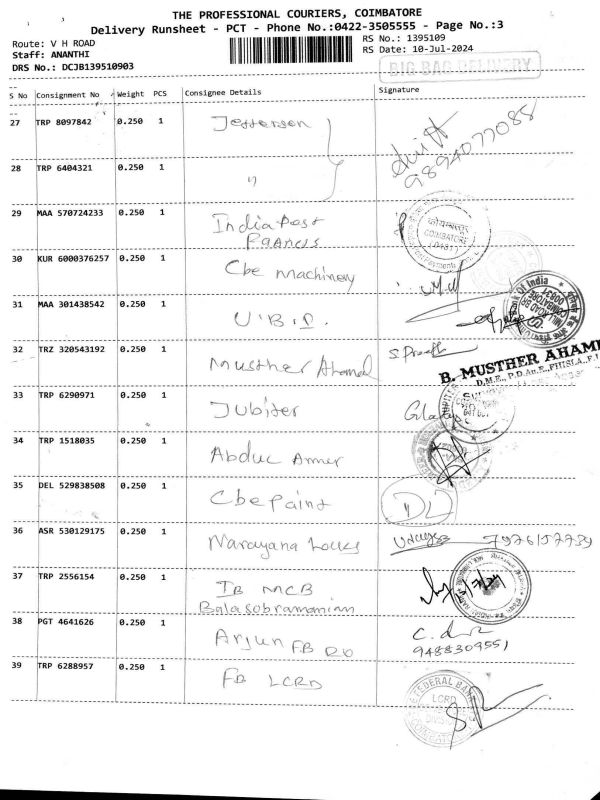 THE PROFESSIONAL COURIERS, COIMBATORE
Delivery Runsheet - PCT - Phone No.:0422-3505555 - Page No.:3
Route: V H ROAD
RS No.: 1395109
Staff: ANANTHI
RS Date: 10-Jul-2024
DRS No.: DCJB139510903
BIG BAG DELIVERY
S No Consignment No Weight PCS Consignee Details Signature
27 TRP 8097842 0.250 1 Jefferson
9894077088
28 TRP 6404321 0.250 1 "
29 MAA 570724233 0.250 1 India Post
कोयम्बत्तूर
COIMBATORE
30 KUR 6000376257 0.250 1 Cbe Machinery
31 MAA 301438542 0.250 1 U.B.I.
32 TRZ 320543192 0.250 1 Musther Ahamed
B. MUSTHER AHAM
33 TRP 6290971 0.250 1 Jubiter
34 TRP 1518035 0.250 1 Abduc Ammer
35 DEL 529838508 0.250 1 Cbe Paint
36 ASR 530129175 0.250 1 Narayana
37 TRP 2556154 0.250 1 IB MCB
Balasobramanian
38 PGT 4641626 0.250 1 Arjun FB
9488309551
39 TRP 6288957 0.250 1 FB LCRD
FEDERAL BANK
LCRD
DIVISION